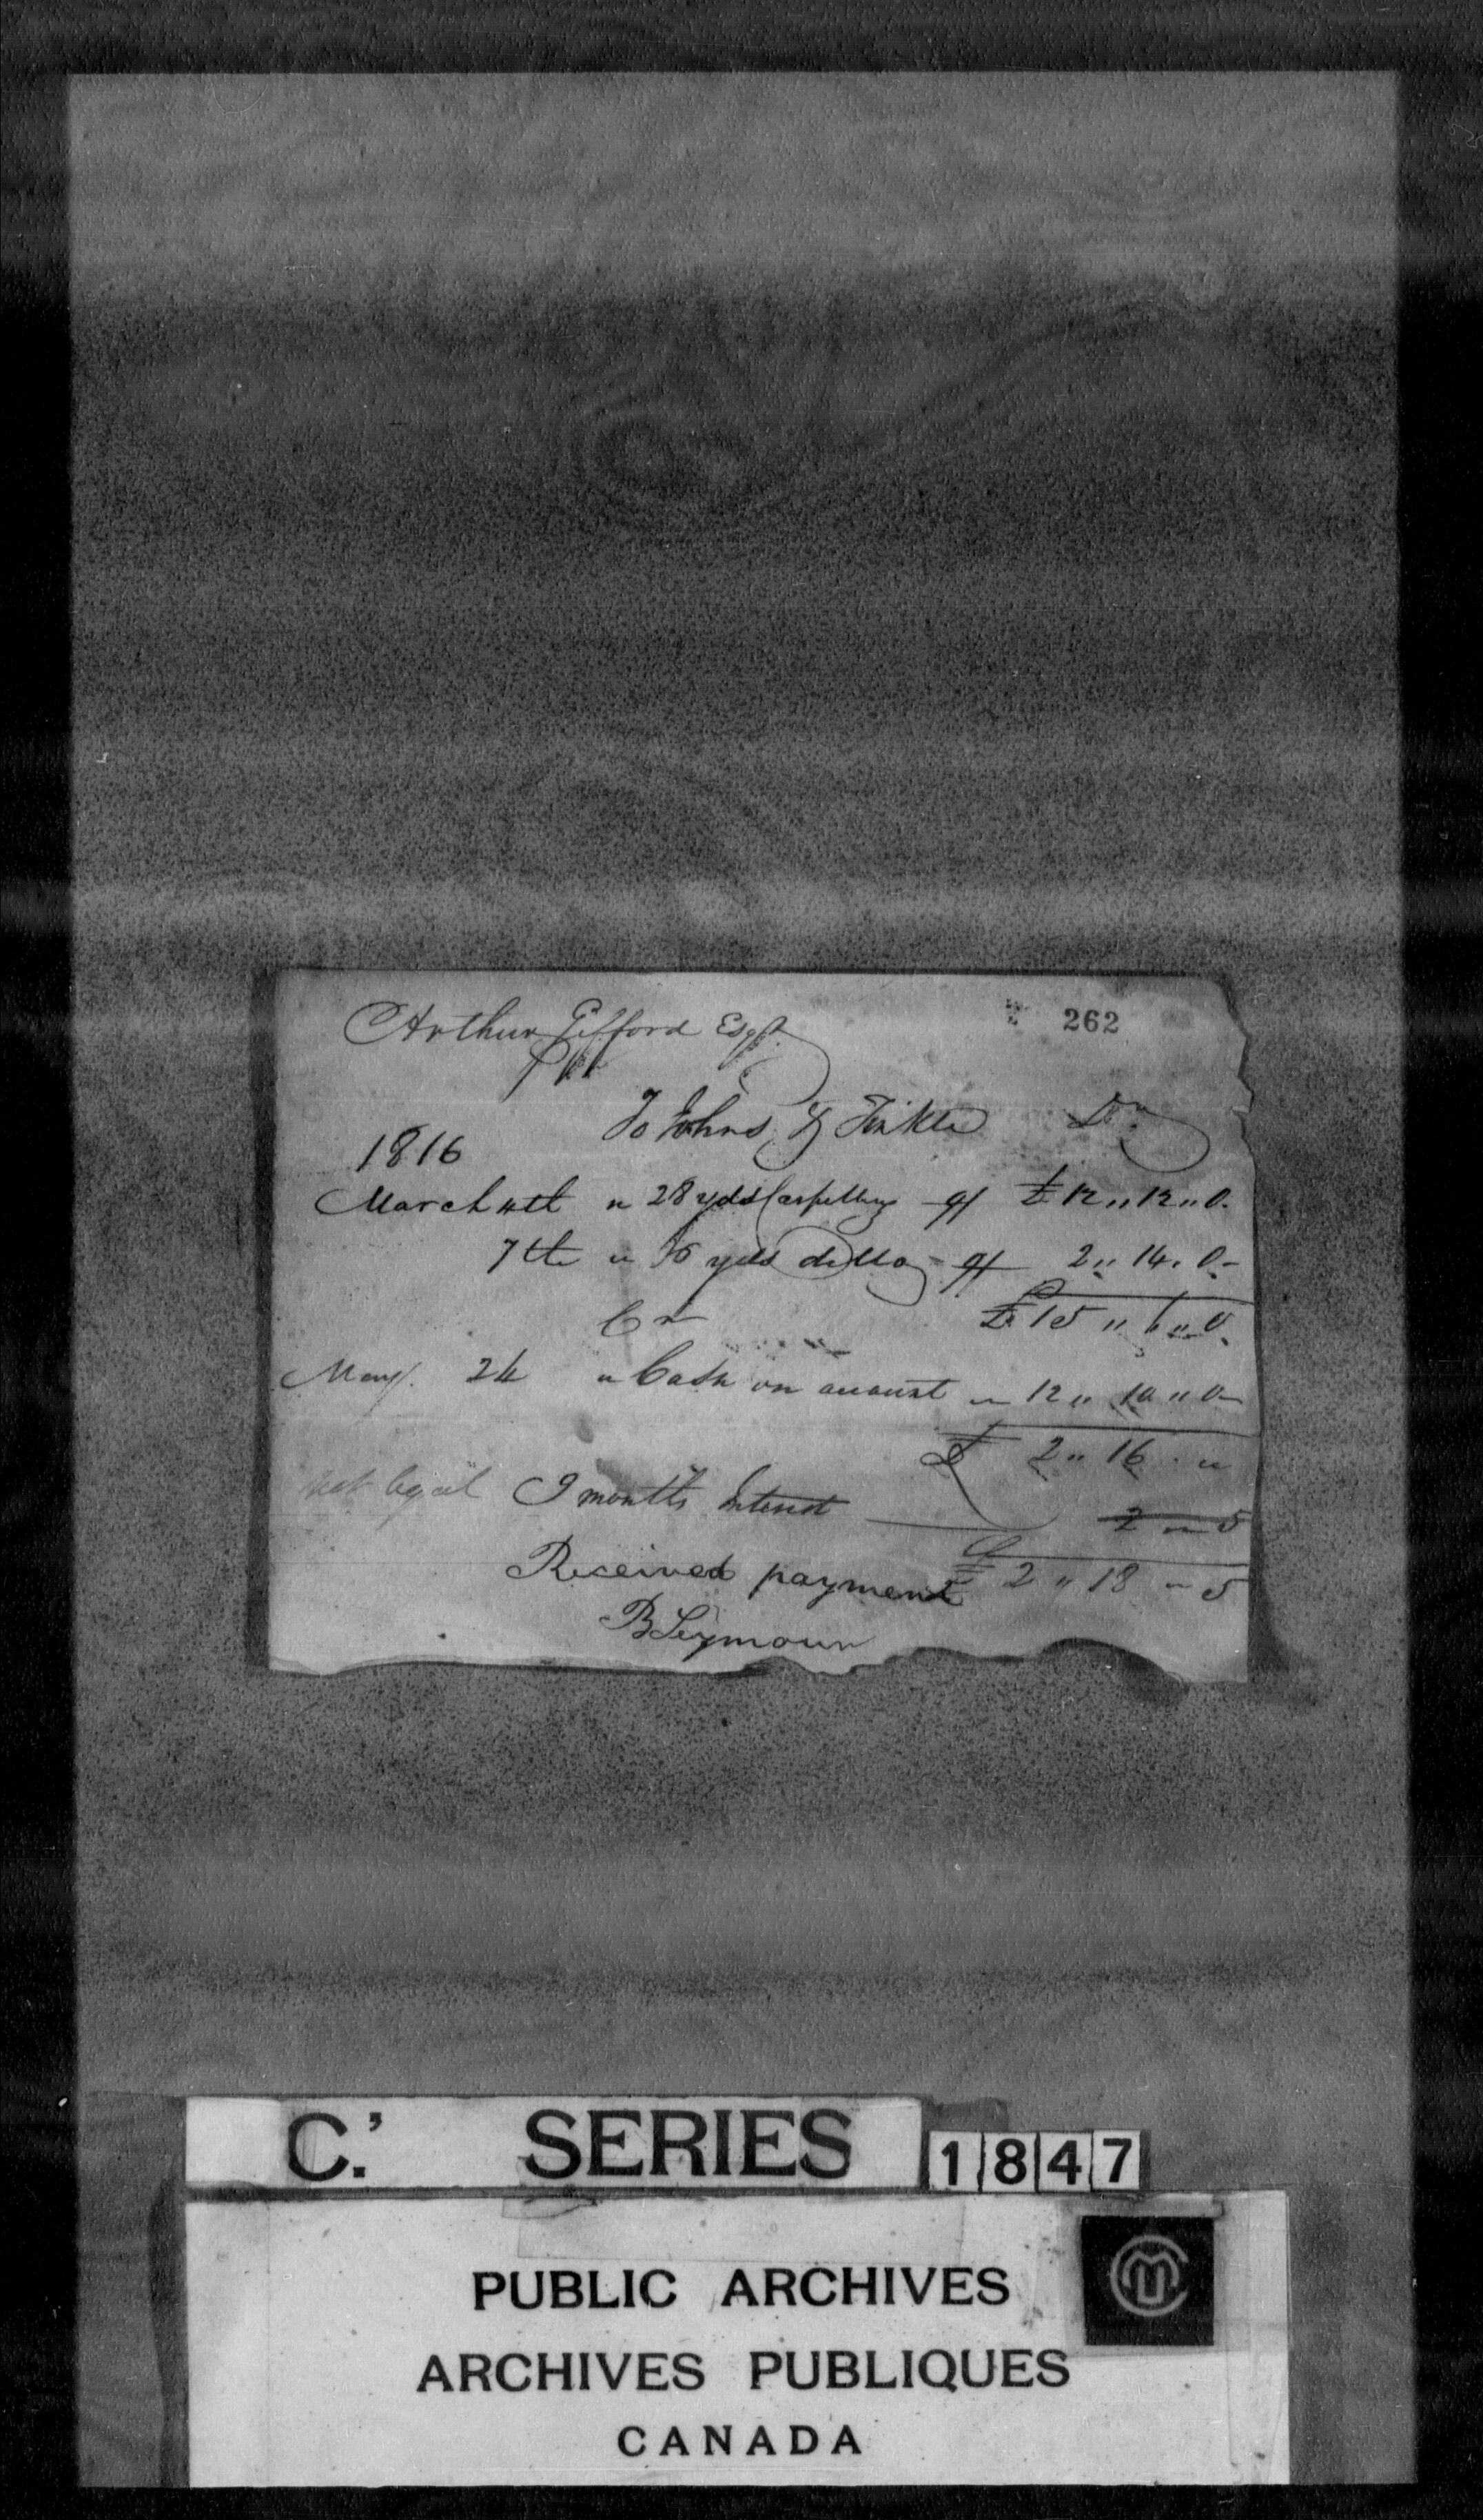 262
Arthur Gifford Esqr.
To Johns & Finkle Dr
1816
March 4th " 28 yds Carpetting 9/ £12 " 12 " 0.
7th " 6 yds ditto 9/ 2 " 14 . 0 -
£15 " 6 " 0.
Cr
May 24 " Cash on account " 12 " 10 " 0
£ 2 " 16 . "
not legal 9 months Interest 2 " 5
£ 2 " 18 " 5
Received payment
B Seymour
C.' SERIES 1847
PUBLIC ARCHIVES
ARCHIVES PUBLIQUES
CANADA